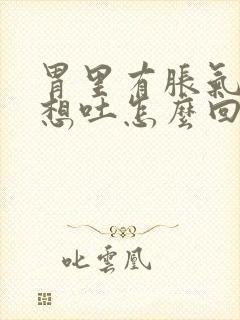 胃里有脹氣
想吐怎麼回
叱雲凰